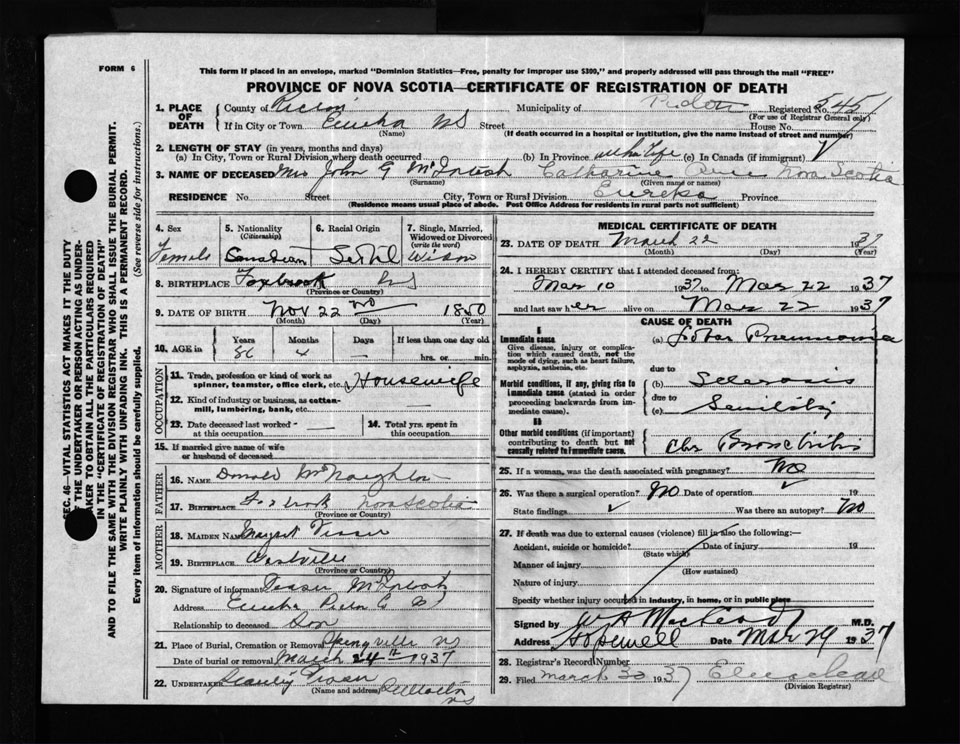 FORM 6
This form if placed in an envelope, marked "Dominion Statistics—Free, penalty for improper use $300," and properly addressed will pass through the mail "FREE"
PROVINCE OF NOVA SCOTIA—CERTIFICATE OF REGISTRATION OF DEATH
1. PLACE OF DEATH County of Pictou Municipality of Pictou Registered No. 5451
(For use of Registrar General only)
If in City or Town Eureka NS Street House No.
(Name) (If death occurred in a hospital or institution, give the name instead of street and number)
2. LENGTH OF STAY (in years, months and days)
(a) In City, Town or Rural Division where death occurred (b) In Province whole life (c) In Canada (if immigrant)
3. NAME OF DECEASED Mrs John G McIntosh Catharine Nova Scotia
(Surname) (Given name or names)
RESIDENCE No. Street City, Town or Rural Division Eureka Province
(Residence means usual place of abode. Post Office Address for residents in rural parts not sufficient)
4. Sex Female
5. Nationality (Citizenship) Canadian
6. Racial Origin
7. Single, Married, Widowed or Divorced (write the word) Widow
8. BIRTHPLACE Foxbrook NS
(Province or Country)
9. DATE OF BIRTH Nov 22nd 1850
(Month) (Day) (Year)
10. AGE in Years Months Days If less than one day old
86 4 — hrs. or min.
OCCUPATION
11. Trade, profession or kind of work as spinner, teamster, office clerk, etc. Housewife
12. Kind of industry or business, as cotton-mill, lumbering, bank, etc. —
13. Date deceased last worked at this occupation —
14. Total yrs. spent in this occupation
15. If married give name of wife or husband of deceased
FATHER
16. NAME Donald McNaughton
17. BIRTHPLACE Foxbrook Nova Scotia
(Province or Country)
MOTHER
18. MAIDEN NAME Margaret
19. BIRTHPLACE Westville
(Province or Country)
20. Signature of informant McIntosh
Address Eureka Pictou Co
Relationship to deceased Son
21. Place of Burial, Cremation or Removal Springville NS
Date of burial or removal March 24th 1937
22. UNDERTAKER Stanley
(Name and address) NS
MEDICAL CERTIFICATE OF DEATH
23. DATE OF DEATH March 22 1937
(Month) (Day) (Year)
24. I HEREBY CERTIFY that I attended deceased from:
Mar 10 1937 to Mar 22 1937
and last saw her alive on Mar 22 1937
CAUSE OF DEATH
I
Immediate cause (a) Lobar Pneumonia
Give disease, injury or complication which caused death, not the mode of dying, such as heart failure, asphyxia, asthenia, etc.
due to
Morbid conditions, if any, giving rise to immediate cause (stated in order proceeding backwards from immediate cause).
(b) Sclerosis
due to
(c) Senility
II
Other morbid conditions (if important) contributing to death but not causally related to immediate cause.
Chr Bronchitis
25. If a woman, was the death associated with pregnancy? No
26. Was there a surgical operation? No Date of operation 19
State findings Was there an autopsy? No
27. If death was due to external causes (violence) fill in also the following:—
Accident, suicide or homicide? Date of injury 19
(State which)
Manner of injury
(How sustained)
Nature of injury
Specify whether injury occurred in industry, in home, or in public place
Signed by MacLeod M.D.
Address Hopewell Date Mar 29 1937
28. Registrar's Record Number
29. Filed March 30 1937
(Division Registrar)
SEC. 46—VITAL STATISTICS ACT MAKES IT THE DUTY
OF THE UNDERTAKER OR PERSON ACTING AS UNDERTAKER TO OBTAIN ALL THE PARTICULARS REQUIRED
IN THE "CERTIFICATE OF REGISTRATION OF DEATH"
AND TO FILE THE SAME WITH THE DIVISION REGISTRAR WHO SHALL ISSUE THE BURIAL PERMIT.
WRITE PLAINLY WITH UNFADING INK. THIS IS A PERMANENT RECORD.
Every item of information should be carefully supplied. (See reverse side for instructions.)